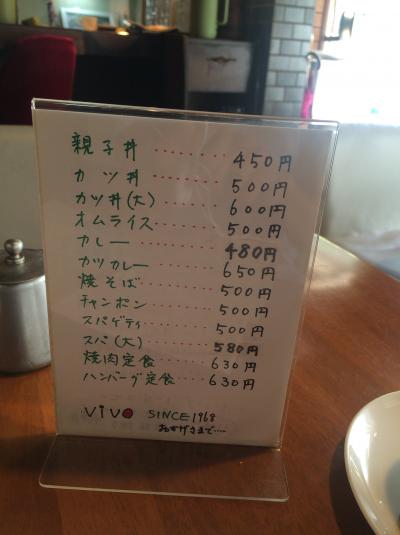 親子丼 ........ 450円
カツ丼 ........ 500円
カツ丼(大) ...... 600円
オムライス ...... 500円
カレー ........ 480円
カツカレー ...... 650円
焼そば ........ 500円
チャンポン ...... 500円
スパゲティ ...... 500円
スパ(大) ...... 580円
焼肉定食 ..... 630円
ハンバーグ定食 .... 630円
ViVO SINCE1968
おかげさまで....